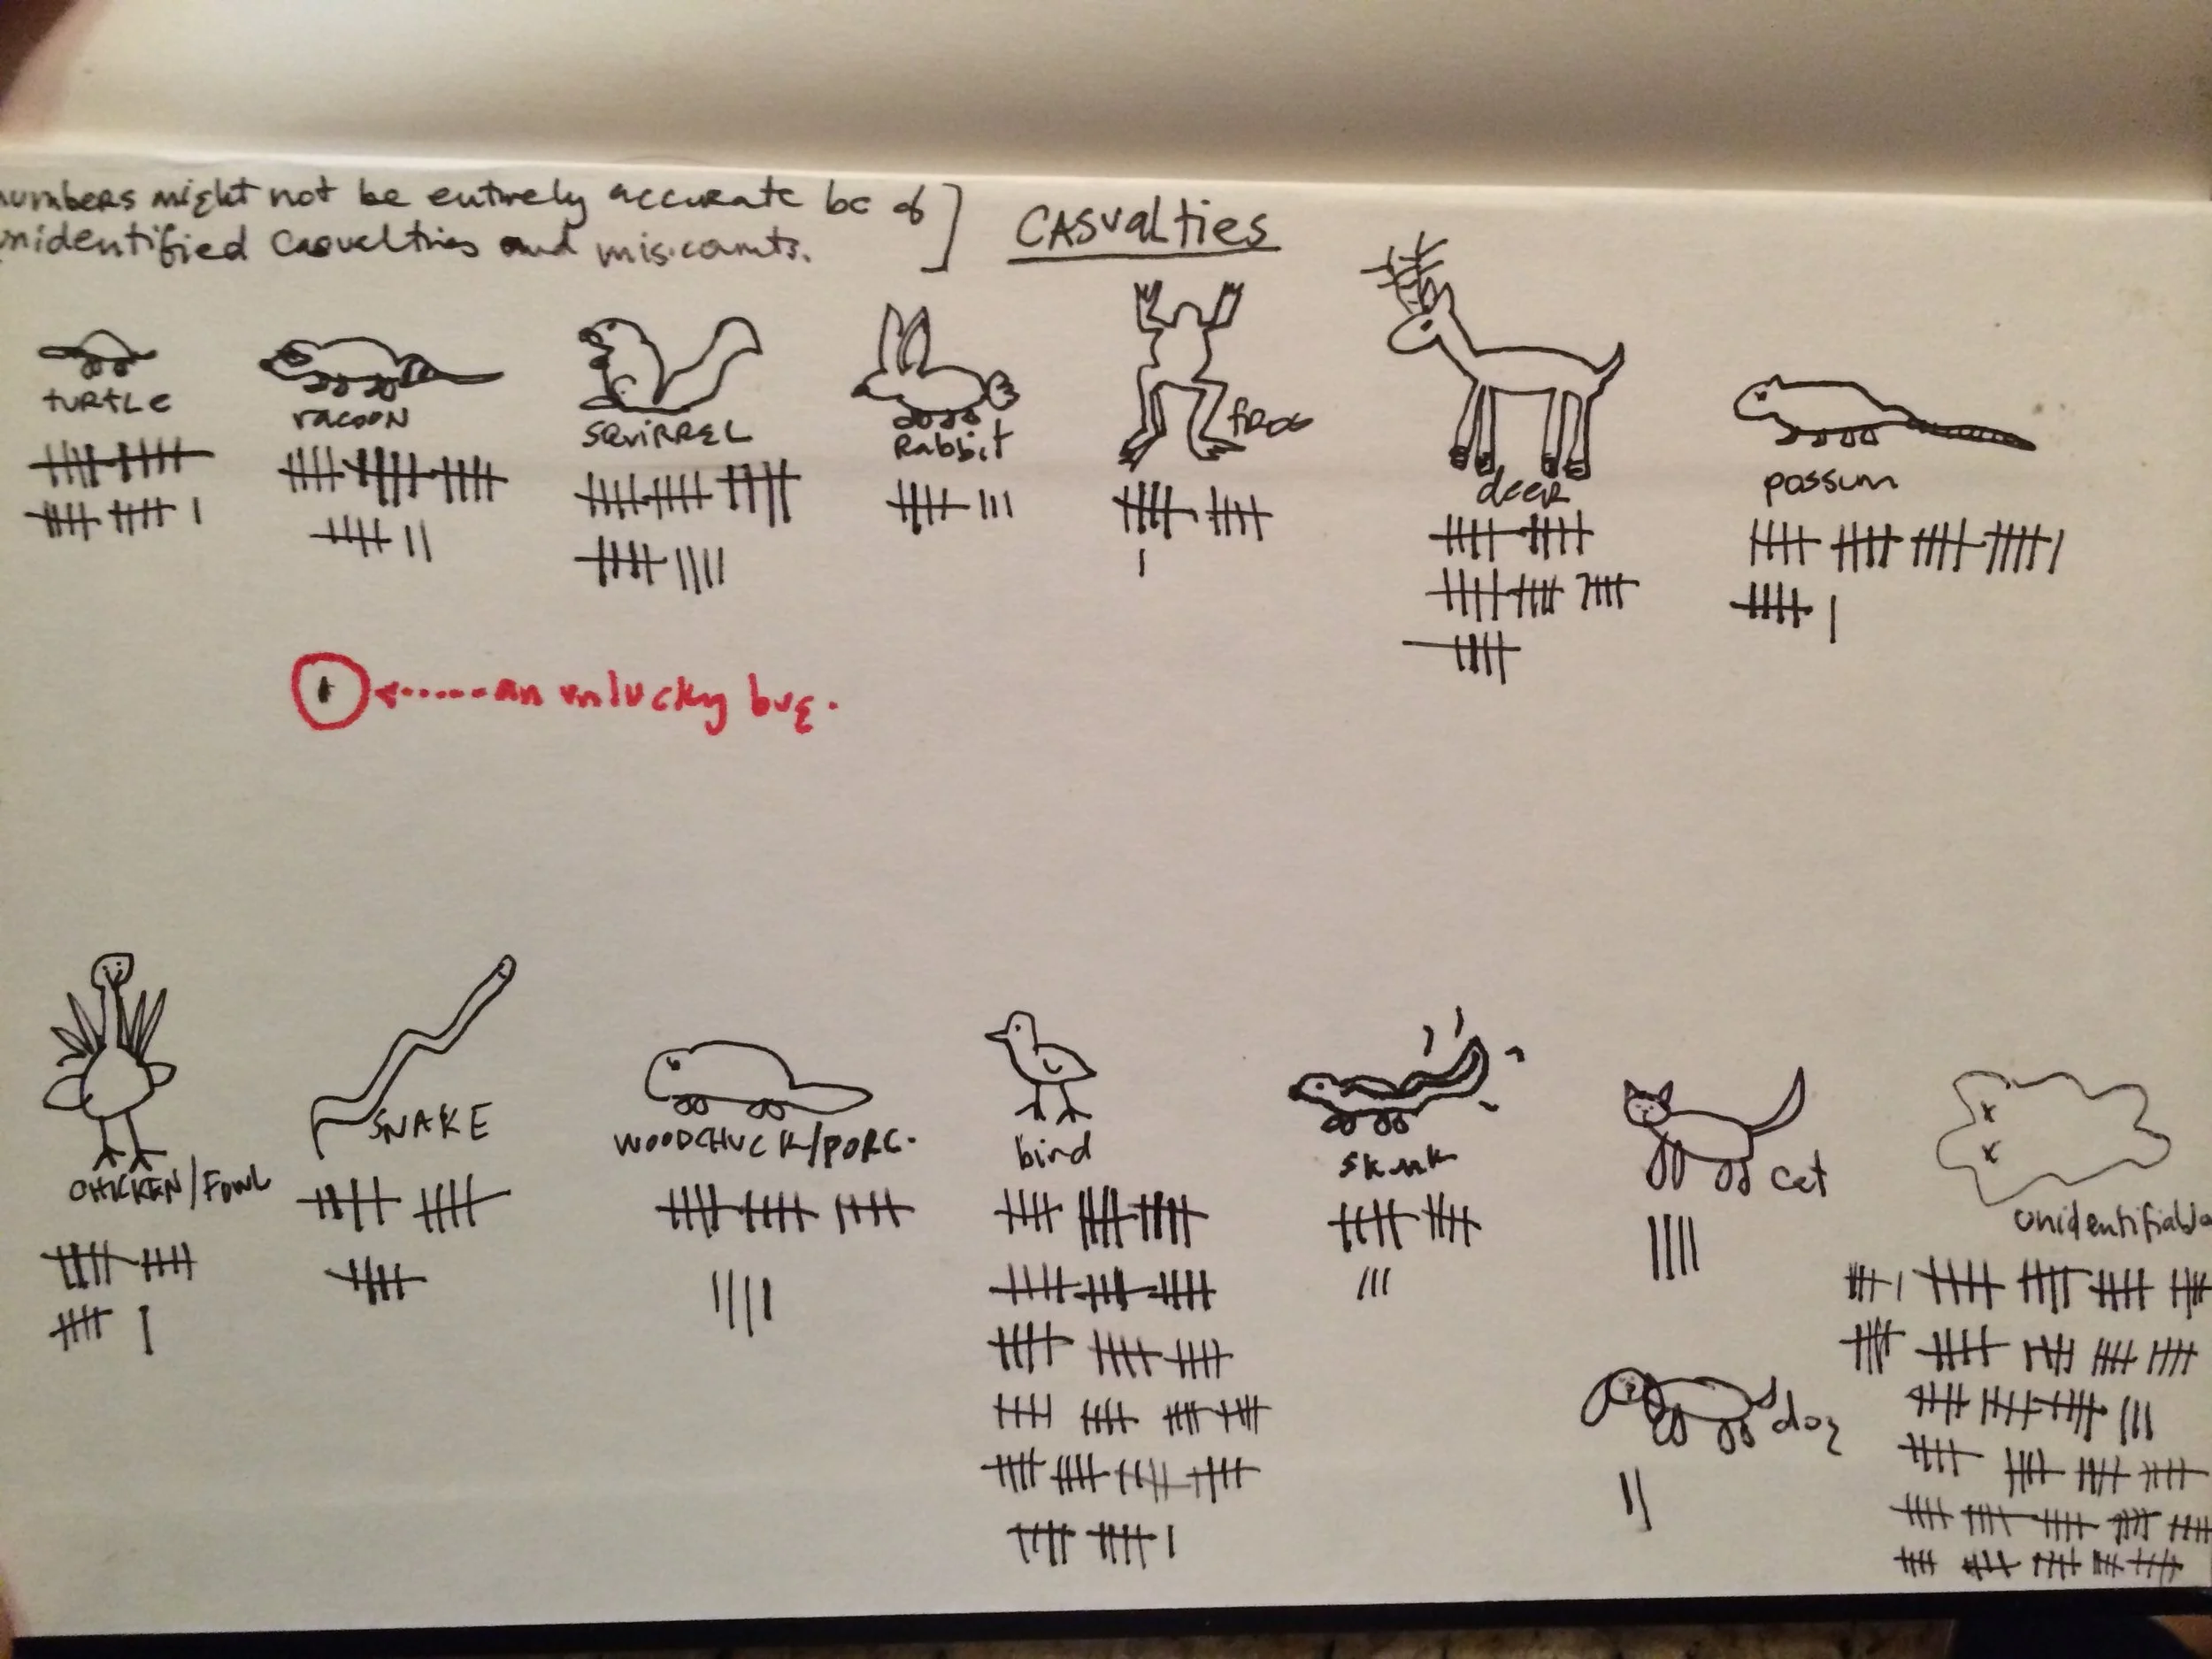 numbers might not be entirely accurate bc of
unidentified casuelties and miscounts.
CASUALTIES
TURTLE
racoon
SQUIRREL
Rabbit
frog
deer
possum
an unlucky bug.
CHICKEN/FOWL
SNAKE
WOODCHUCK/PORC.
bird
skunk
cat
unidentifiable
dog